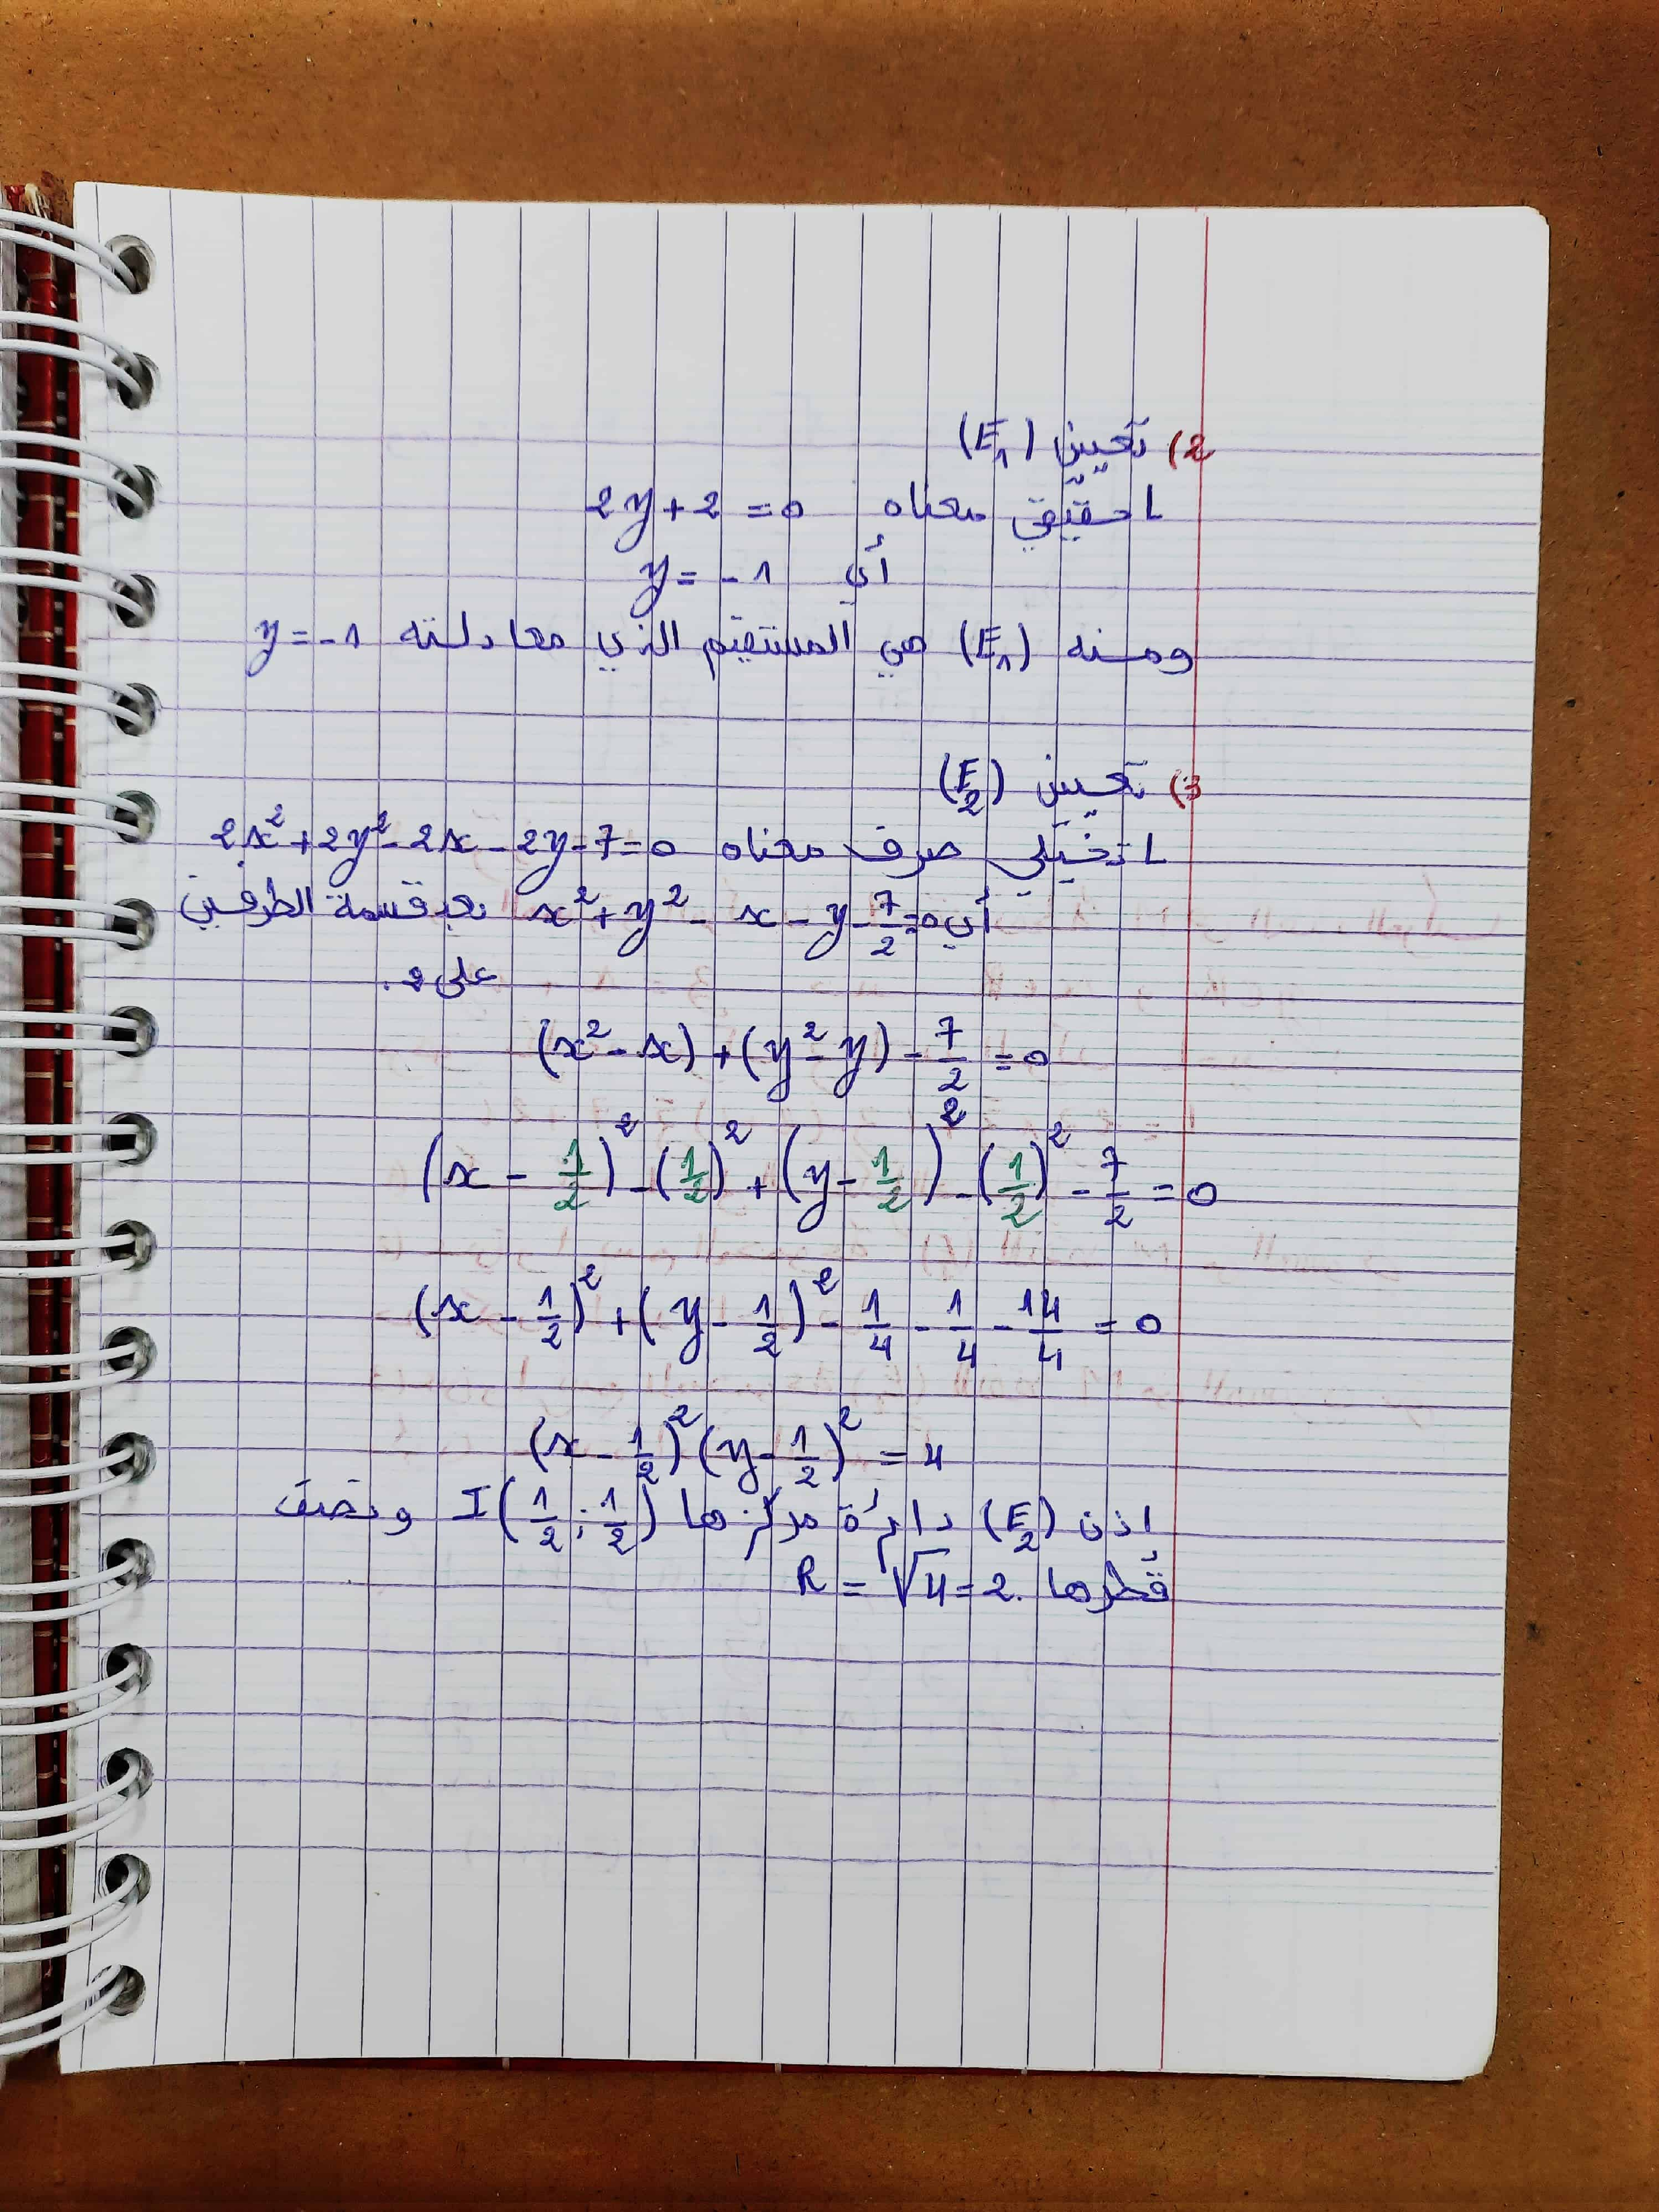 2) تعيين (E₁)
L حقيقي معناه 2y+2=0
أي y=-1
ومنه (E₁) هي المستقيم الذي معادلته y=-1
3) تعيين (E₂)
L تخيلي صرف معناه 2x²+2y²-2x-2y-7=0
أي x²+y²-x-y-7/2=0 بعد قسمة الطرفين
على 2.
(x²-x)+(y²-y)-7/2=0
(x-1/2)²-(1/2)²+(y-1/2)²-(1/2)²-7/2=0
(x-1/2)²+(y-1/2)²-1/4-1/4-14/4=0
(x-1/2)²(y-1/2)²=4
اذن (E₂) دائرة مركزها I(1/2;1/2) ونصف
قُطرها R=√4=2.